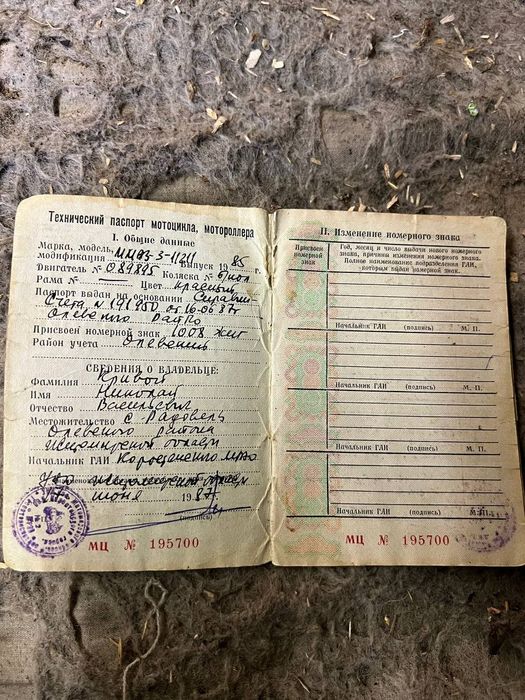 Технический паспорт мотоцикла, мотороллера
I. Общие данные
Марка, модель,
модификация ММВЗ-3-11211 Выпуск 1985 г.
Двигатель № 089895 Коляска №
Рама № — Цвет красный
Паспорт выдан на основании Справки
счета № 191950 от 16.06.87г
Олевского РайПО
Присвоен номерной знак 1008 ЖИТ
Район учета Олевский
СВЕДЕНИЯ О ВЛАДЕЛЬЦЕ:
Фамилия Кривой
Имя Николай
Отчество Васильевич
Местожительство с. Радовель
Олевского района
Житомирской области
Начальник ГАИ Коростенского МРЭО
УВД Житомирской области
17 июня 1987г.
(подпись)
МЦ № 195700
II. Изменение номерного знака
Присвоен номерной знак
Год, месяц и число выдачи нового номерного знака, причина изменения номерного знака. Полное наименование подразделения ГАИ, которым выдан номерной знак.
Начальник ГАИ (подпись) М. П.
Начальник ГАИ (подпись) М. П.
Начальник ГАИ (подпись) М. П.
Начальник ГАИ (подпись) М. П.
МЦ № 195700